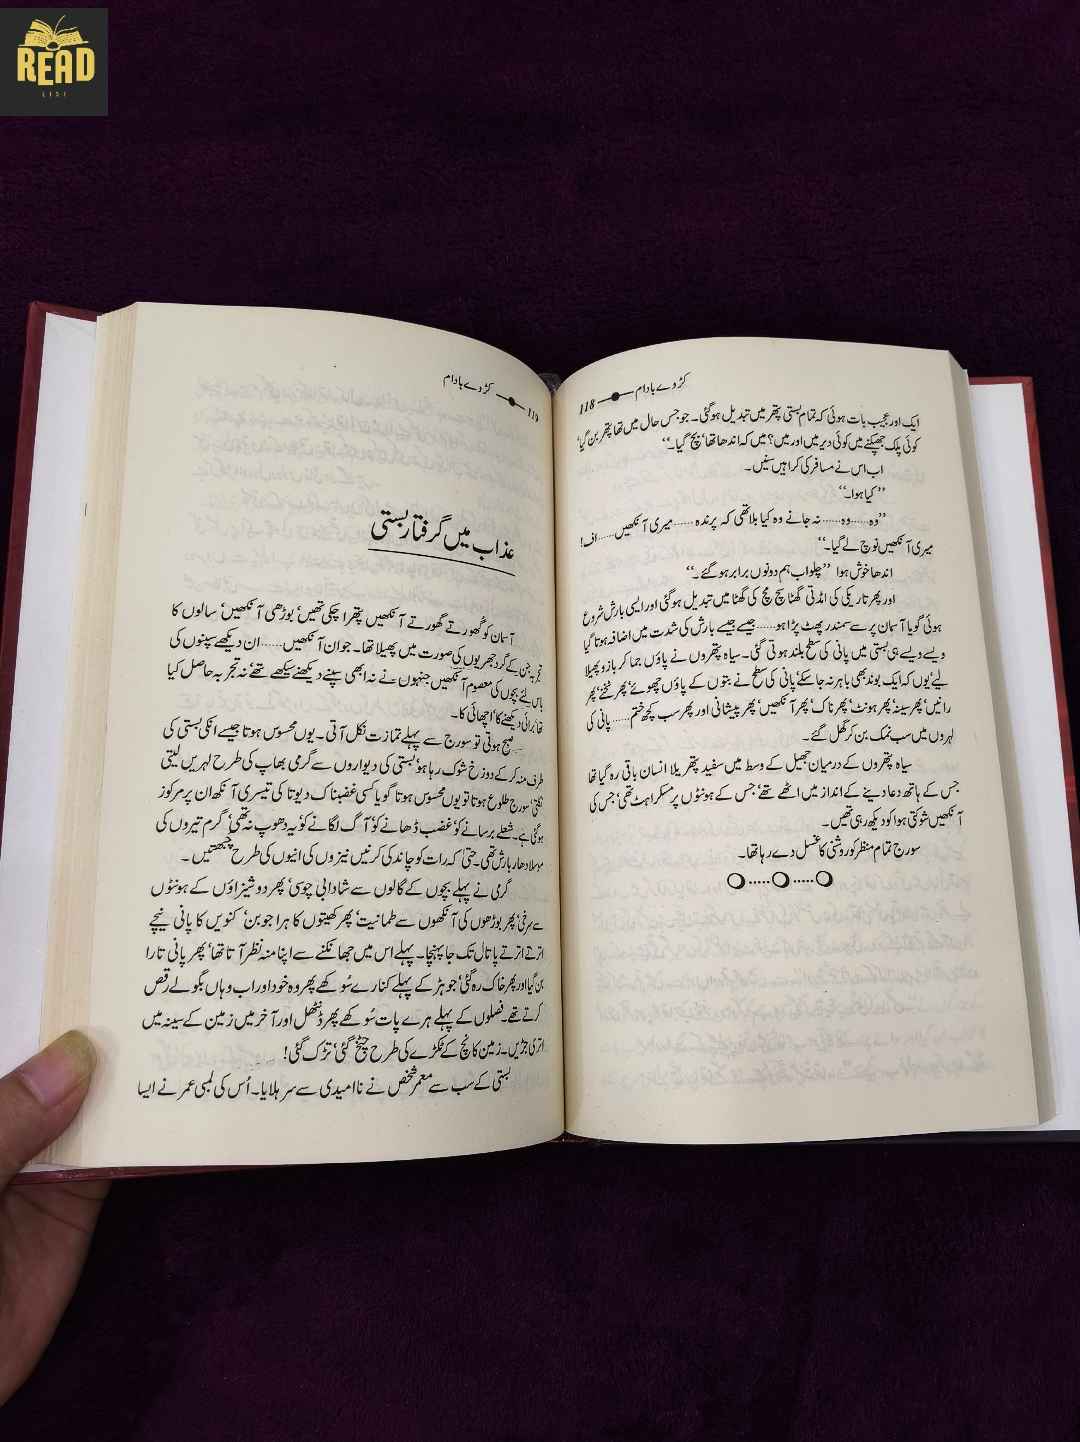 READ
LIST
118 کڑوے بادام
ایک اور عجیب بات ہوئی کہ تمام بستی پتھر میں تبدیل ہو گئی۔ جو جس حال میں تھا پتھر بن گیا‘
کوئی پلک جھپکنے میں کوئی دیر میں اور میں؟ میں کہ اندھا تھا‘ بچ گیا۔‘‘
اب اس نے مسافر کی کراہیں سنیں۔
’’کیا ہوا۔‘‘
’’وہ......وہ...... نہ جانے وہ کیا بلا تھی کہ پرندہ......میری آنکھیں......اف!
میری آنکھیں نوچ لے گیا۔‘‘
اندھا خوش ہوا ’’چلو اب ہم دونوں برابر ہو گئے۔‘‘
اور پھر تاریکی کی امڈتی گھٹا سچ مچ کی گھٹا میں تبدیل ہو گئی اور ایسی بارش شروع
ہوئی گویا آسمان پر سے سمندر پھٹ پڑا ہو......جیسے جیسے بارش کی شدت میں اضافہ ہوتا گیا
ویسے ویسے ہی بستی میں پانی کی سطح بلند ہوتی گئی۔ سیاہ پتھروں نے پاؤں جما کر بازو پھیلا
لیے‘ یوں کہ ایک بوند بھی باہر نہ جا سکے‘ پانی کی سطح نے بتوں کے پاؤں چھوئے‘ پھر ٹخنے‘ پھر
رانیں‘ پھر سینہ‘ پھر ہونٹ‘ پھر ناک‘ پھر آنکھیں‘ پھر پیشانی اور پھر سب کچھ ختم...... پانی کی
لہروں میں سب نمک بن کر گھل گئے۔
سیاہ پتھروں کے درمیان جھیل کے وسط میں سفید پتھریلا انسان باقی رہ گیا تھا
جس کے ہاتھ دعا دینے کے انداز میں اٹھے تھے‘ جس کے ہونٹوں پر مسکراہٹ تھی‘ جس کی
آنکھیں شوکتی ہوا کو دیکھ رہی تھیں۔
سورج تمام منظر کو روشنی کا غسل دے رہا تھا۔
119 کڑوے بادام
عذاب میں گرفتار بستی
آسمان کو گھورتے گھورتے آنکھیں پتھرا چکی تھیں‘ بوڑھی آنکھیں‘ سالوں کا
تجربہ جن کے گرد جھریوں کی صورت میں پھیلا تھا۔ جوان آنکھیں......ان دیکھے سپنوں کی
باس لئے بچوں کی معصوم آنکھیں جنہوں نے نہ ابھی سپنے دیکھنے سیکھے تھے‘ نہ تجربہ حاصل کیا
تھا‘ برائی دیکھنے کا‘ اچھائی کا۔
صبح ہوتی تو سورج سے پہلے تمازت نکل آتی۔ یوں محسوس ہوتا جیسے انکی بستی کی
طرف منہ کر کے دوزخ شوک رہا ہو‘ بستی کی دیواروں سے گرمی بھاپ کی طرح لہریں لیتی
نکلتی‘ سورج طلوع ہوتا تو یوں محسوس ہوتا گویا کسی غضبناک دیوتا کی تیسری آنکھ ان پر مرکوز
ہو گئی ہے۔ شعلے برسانے کو‘ غضب ڈھانے کو‘ آگ لگانے کو‘ یہ دھوپ نہ تھی‘ گرم تیروں کی
موسلا دھار بارش تھی۔ حتیٰ کہ رات کو چاند کی کرنیں نیزوں کی انیوں کی طرح چبھتیں۔
گرمی نے پہلے بچوں کے گالوں سے شادابی چوسی‘ پھر دوشیزاؤں کے ہونٹوں
سے سرخی‘ پھر بوڑھوں کی آنکھوں سے طمانیت‘ پھر کھیتوں کا ہرا جوبن‘ کنویں کا پانی نیچے
اترتے اترتے پاتال تک جا پہنچا۔ پہلے اس میں جھانکنے سے اپنا منہ نظر آتا تھا‘ پھر پانی تارا
بن گیا اور پھر خاک رہ گئی‘ جوہڑ کے پہلے کنارے سُوکھے پھر وہ خود اور اب وہاں بگولے رقص
کرتے تھے۔ فصلوں کے پہلے ہرے پات سُوکھے پھر ڈنٹھل اور آخر میں زمین کے سینہ میں
اتری جڑیں۔ زمین کانچ کے ٹکڑے کی طرح چٹخ گئی‘ تڑک گئی!
بستی کے سب سے معمر شخص نے نا امیدی سے سر ہلایا۔ اُس کی لمبی عمر نے ایسا